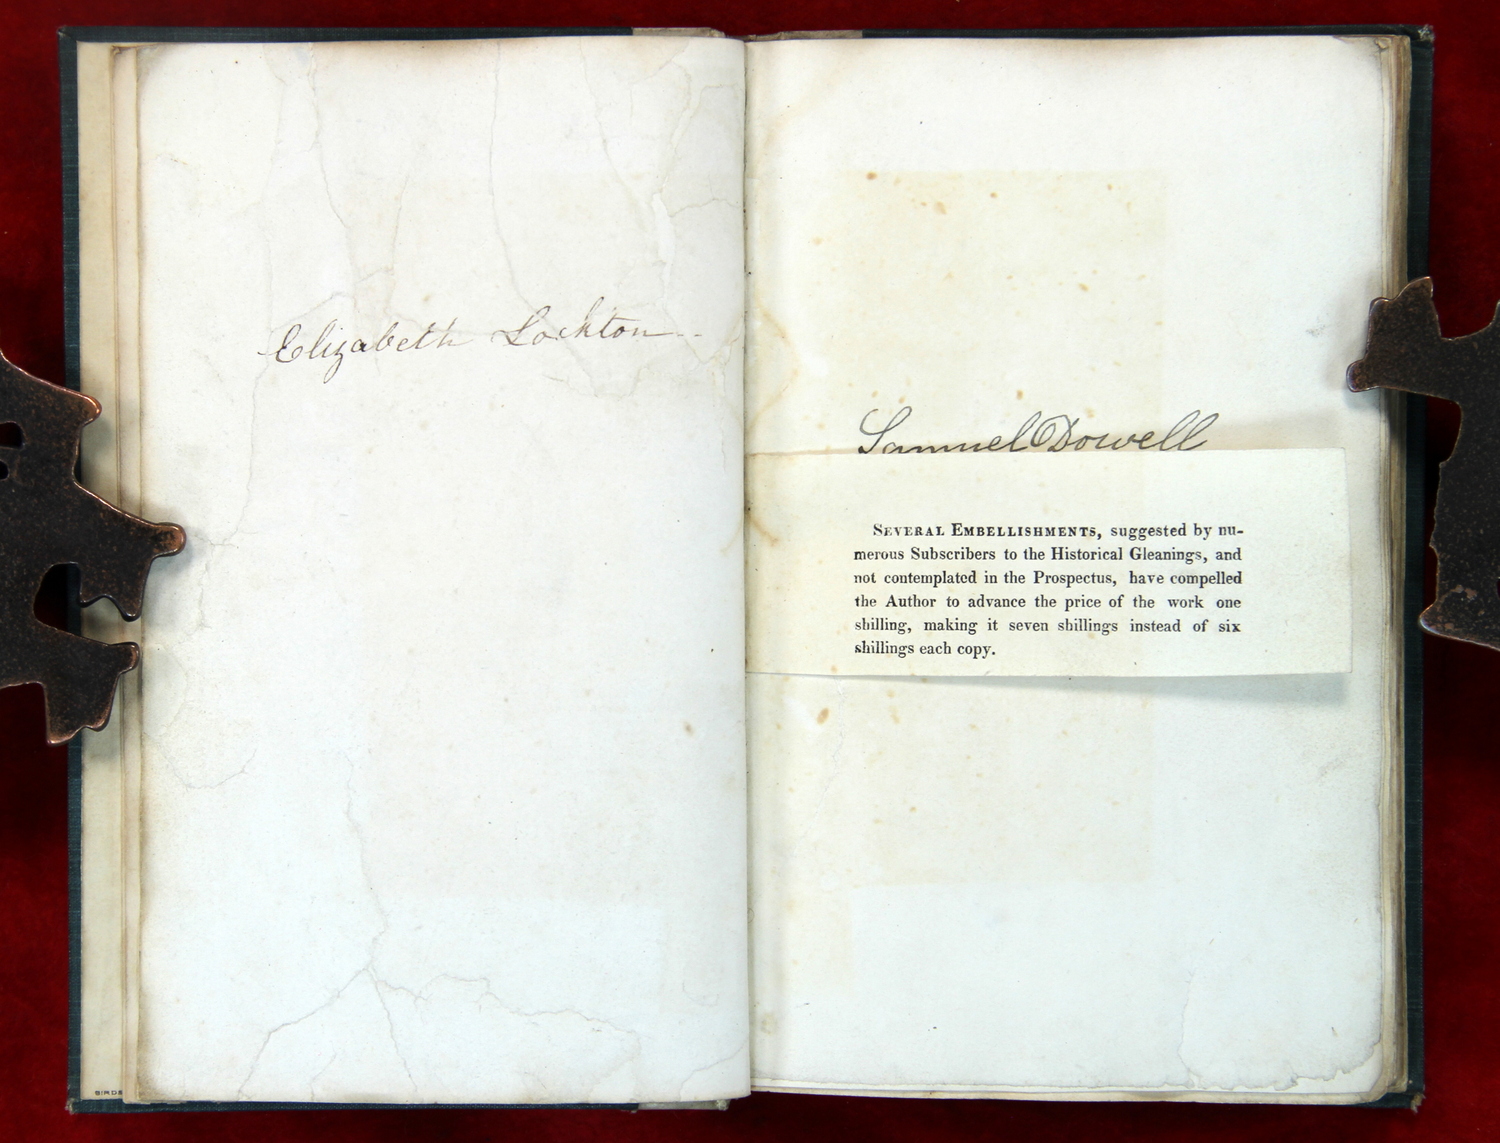 Elizabeth Lockton
Samuel Dowell
Several Embellishments, suggested by nu-
merous Subscribers to the Historical Gleanings, and
not contemplated in the Prospectus, have compelled
the Author to advance the price of the work one
shilling, making it seven shillings instead of six
shillings each copy.
BIRDS